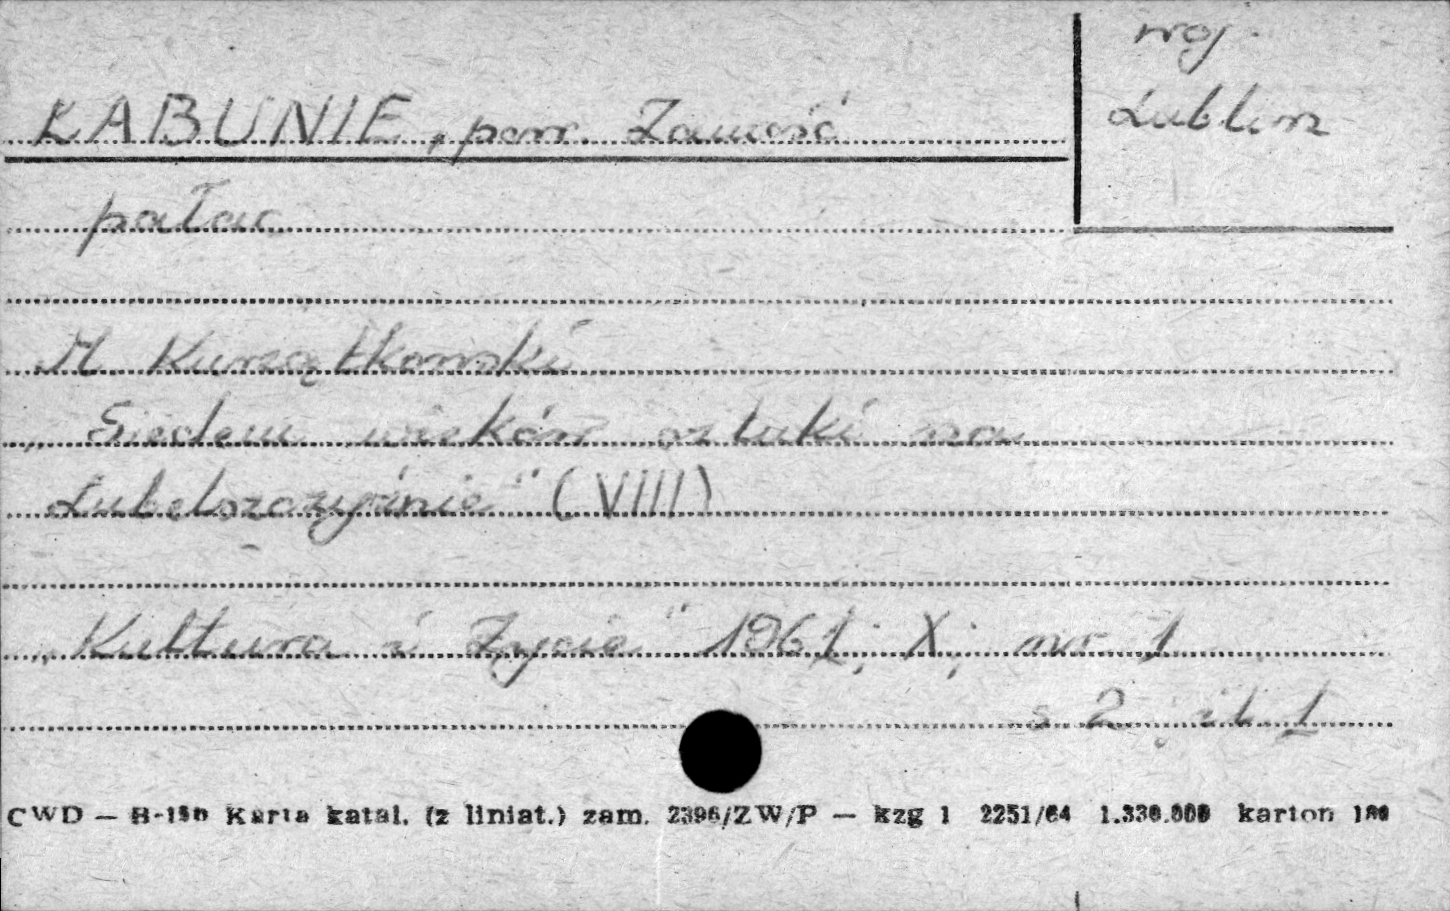 woj.
ŁABUNIE, pow. Zamość
Lublin
pałac
M. Kurzątkowski
„Siedem wieków sztuki na
Lubelszczyźnie" (VIII)
„Kultura i Życie" 1961; X; nr 1
s 2; il. 1
CWD — B-15b Karta katal. (z liniat.) zam. 2396/ZW/P — kzg 1 2251/64 1.330.000 karton 180